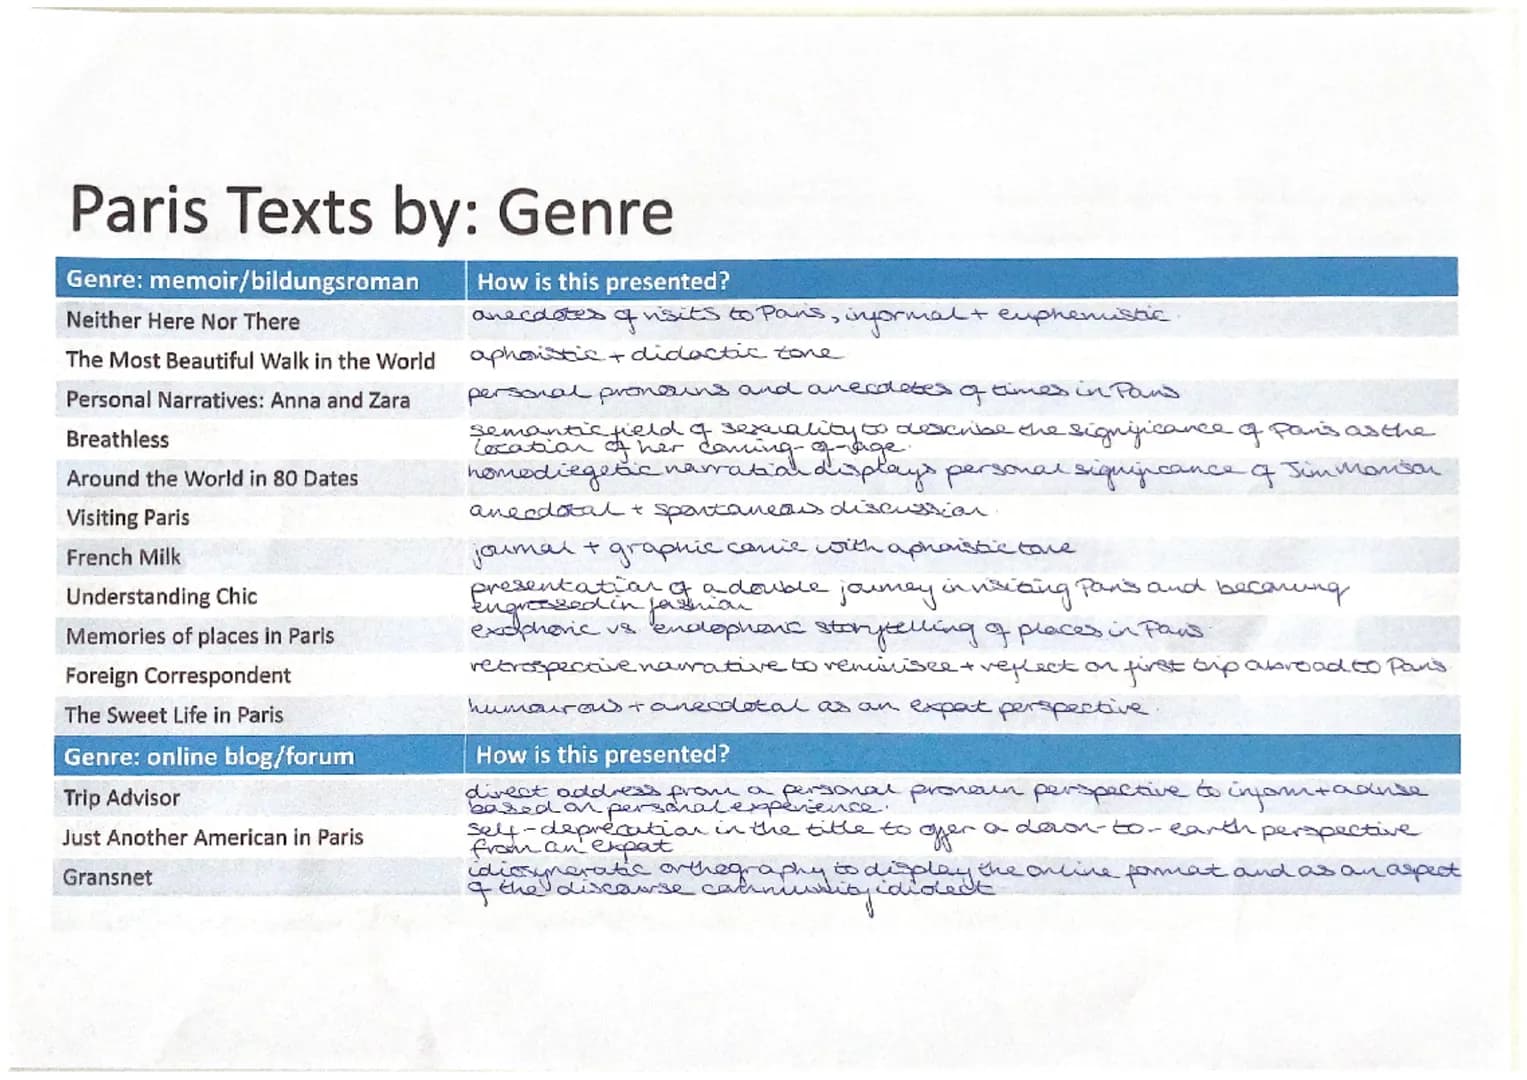 Paris Texts by: Genre
Genre: memoir/bildungsroman How is this presented?
Neither Here Nor There anecdotes of visits to Paris, informal + euphemistic.
The Most Beautiful Walk in the World aphoristic + didactic tone
Personal Narratives: Anna and Zara personal pronouns and anecdotes of times in Paris
Breathless semantic field of sexuality to describe the significance of Paris as the
location of her coming-of-age.
Around the World in 80 Dates homodiegetic narration displays personal significance of Jim Morrison
Visiting Paris anecdotal + spontaneous discussion.
French Milk journal + graphic comic with aphoristic tone
Understanding Chic presentation of a double journey in visiting Paris and becoming
engrossed in fashion
Memories of places in Paris exophoric vs. endophoric storytelling of places in Paris
Foreign Correspondent retrospective narrative to reminisce + reflect on first trip abroad to Paris
The Sweet Life in Paris humourous + anecdotal as an expat perspective.
Genre: online blog/forum How is this presented?
Trip Advisor direct address from a personal pronoun perspective to inform + advise
based on personal experience.
Just Another American in Paris self-deprecation in the title to offer a down-to-earth perspective
from an expat
Gransnet idiosyncratic orthography to display the online format and as an aspect
of the discourse community idiolect